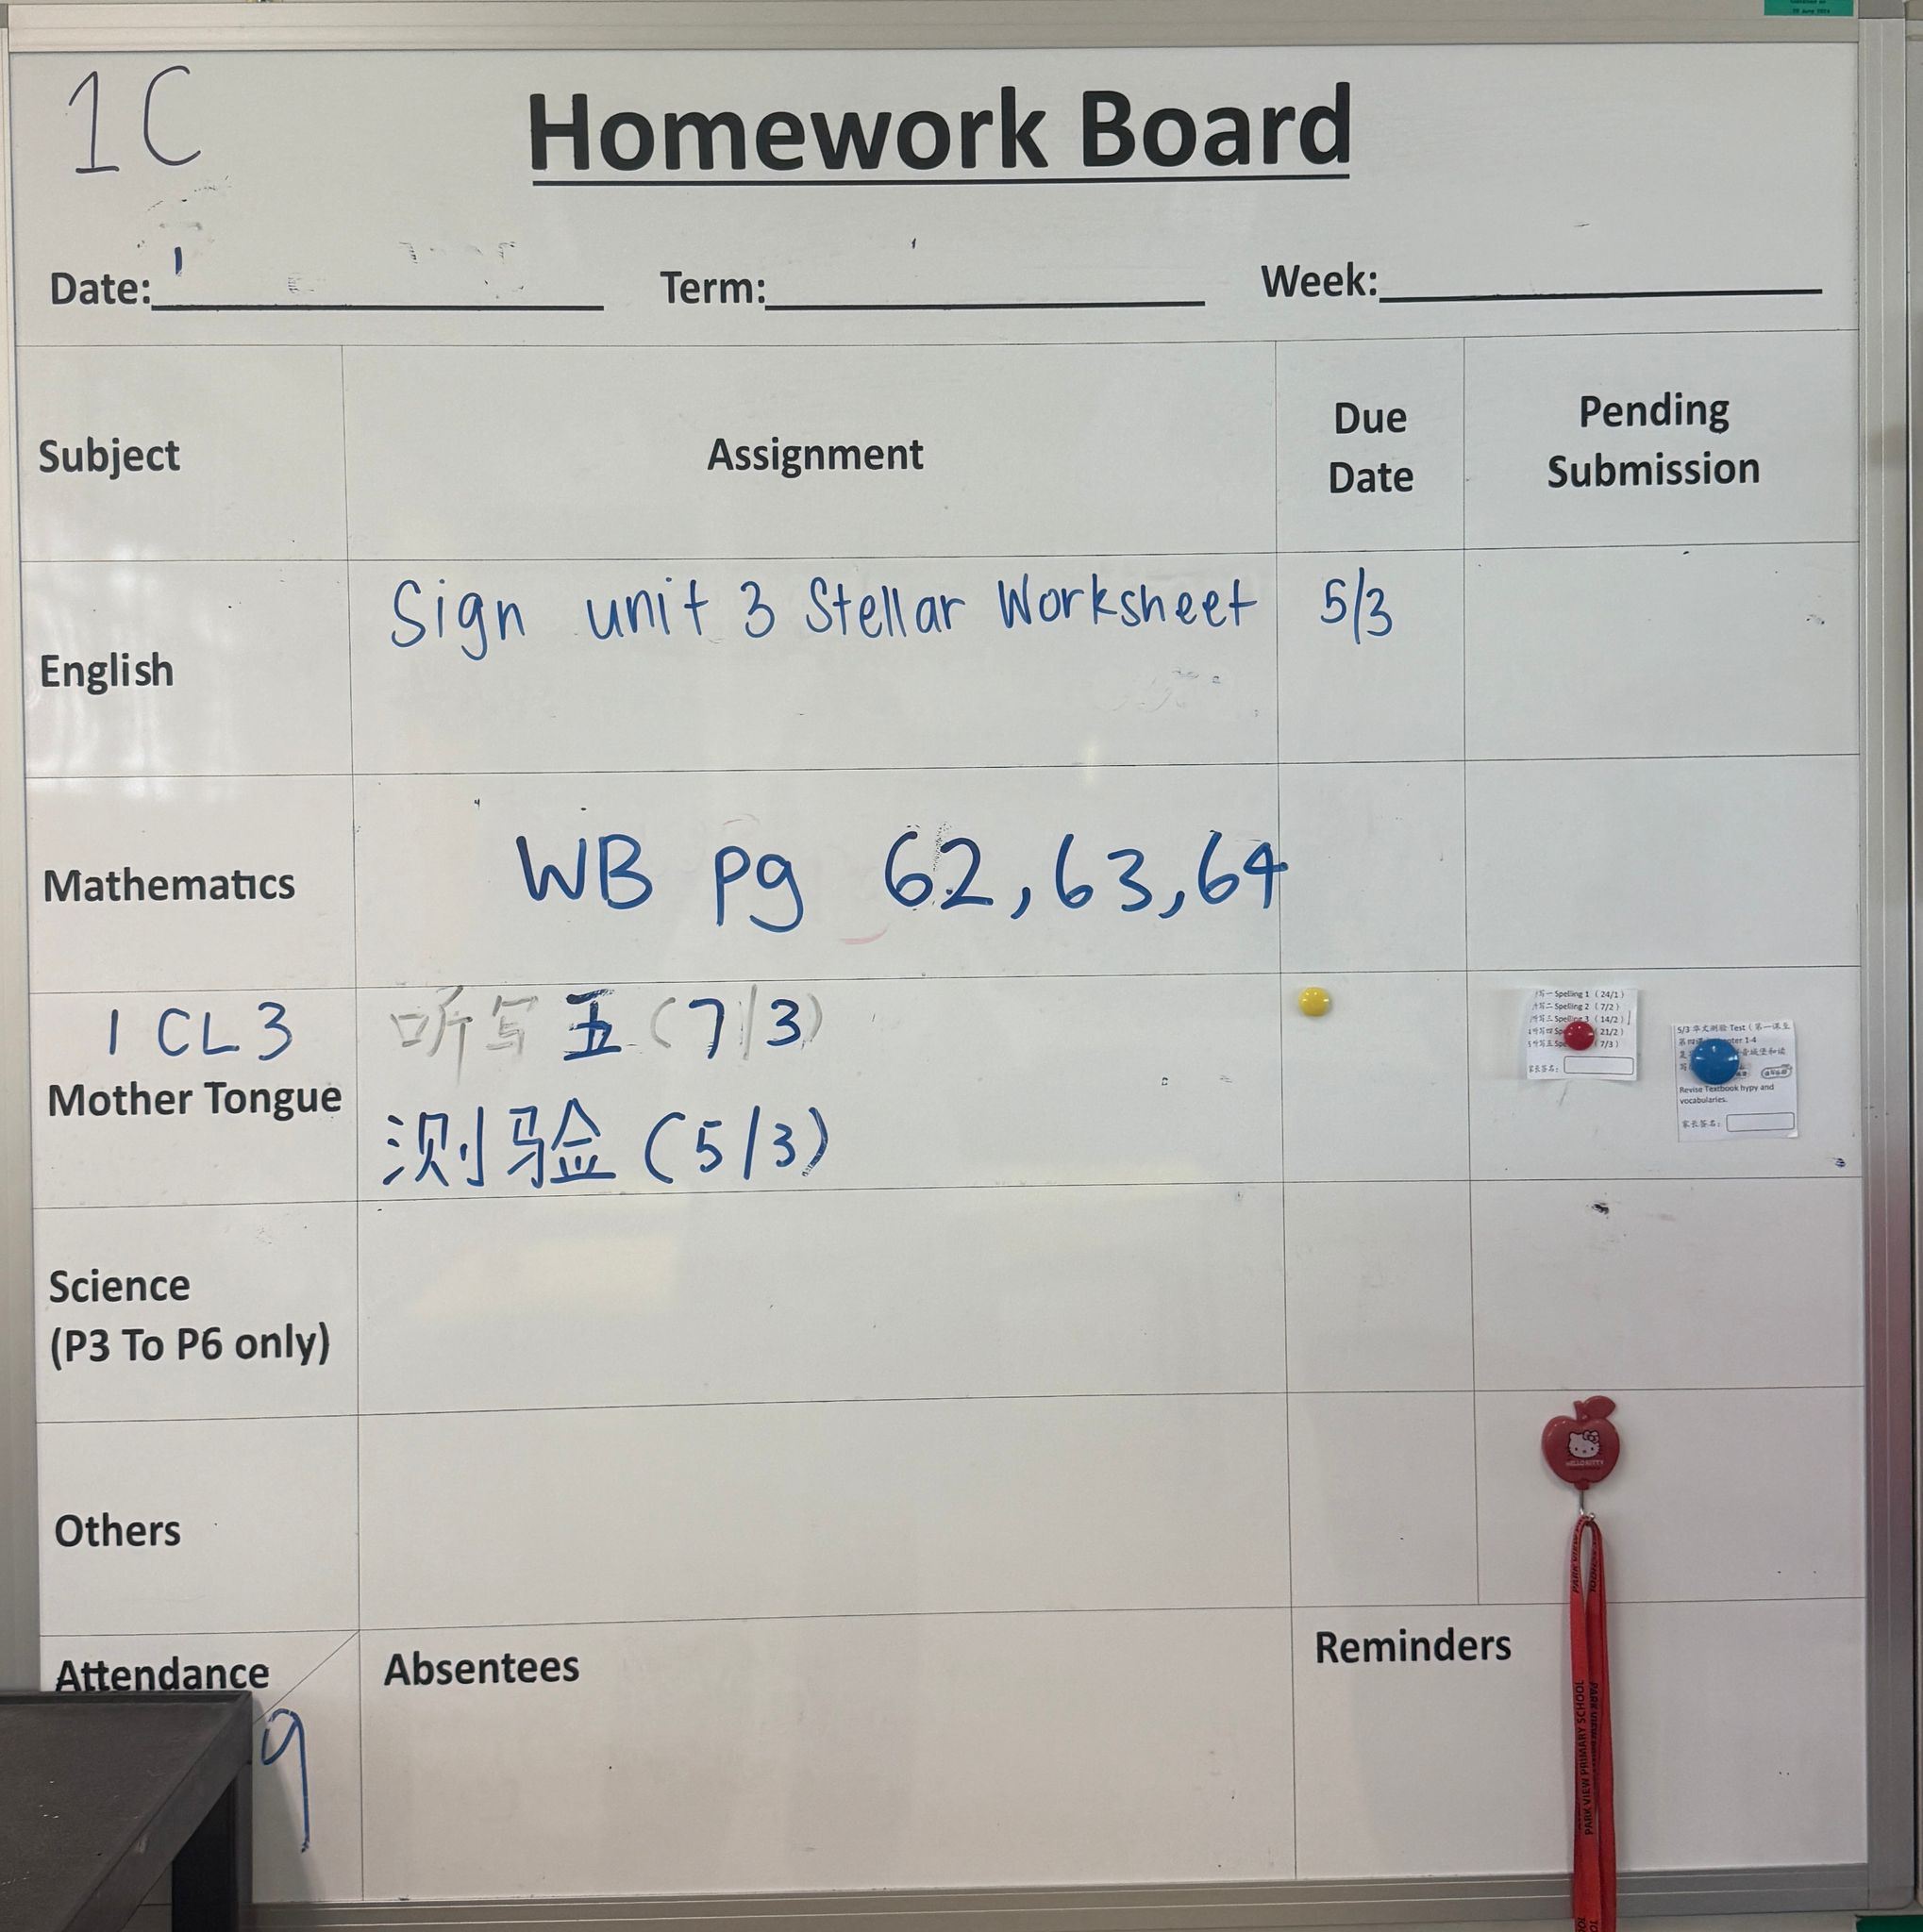 1C
Homework Board
Date: Term: Week:
Subject
Assignment
Due
Date
Pending
Submission
English
Sign unit 3 Stellar Worksheet
5/3
Mathematics
WB pg 62,63,64
1 CL 3
Mother Tongue
听写五(7/3)
测验(5/3)
写一 Spelling 1 (24/1)
写二 Spelling 2 (7/2)
听写三 Spelling 3 (14/2)
听写四 21/2)
听写五 7/3)
家长签名:
5/3 华文测验 Test (第一课至
1-4
Revise Textbook hypy and
vocabularies.
家长签名:
Science
(P3 To P6 only)
Others
HELLO KITTY
Attendance
9
Absentees
Reminders
PARK VIEW PRIMARY SCHOOL